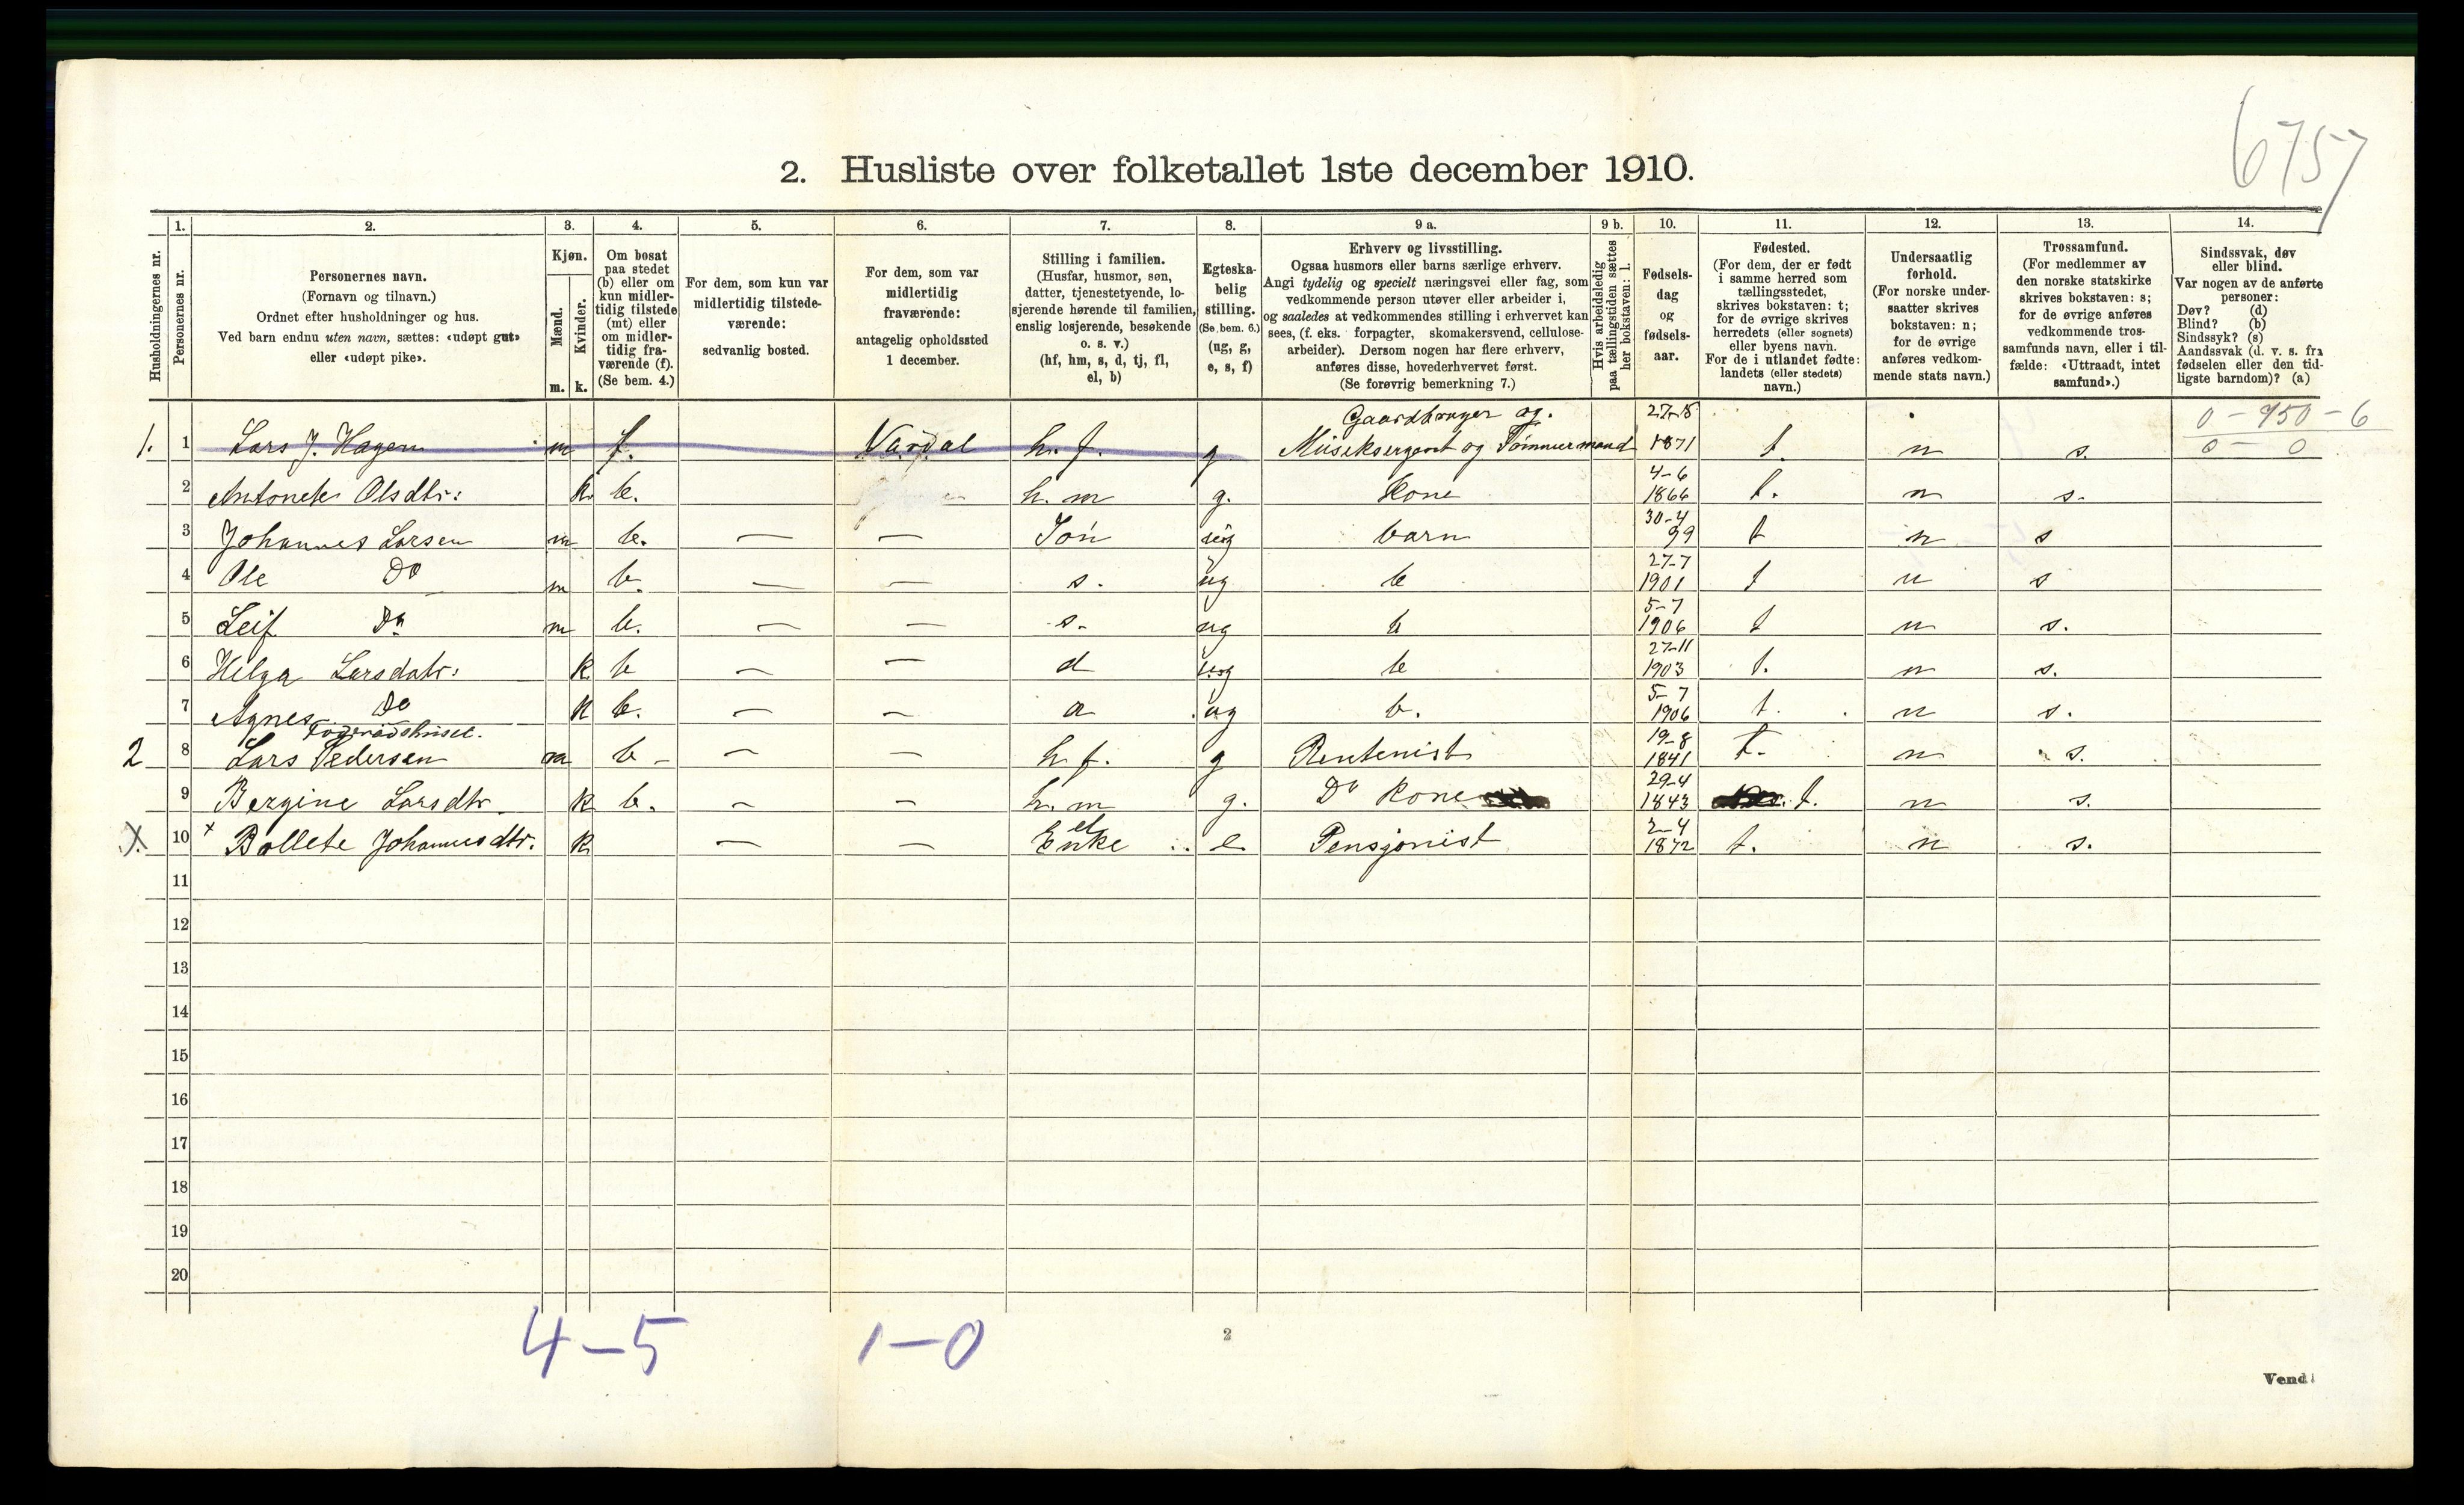 6757
2. Husliste over folketallet 1ste december 1910.
1. 2. 3. 4. 5. 6. 7. 8. 9 a. 9 b. 10. 11. 12. 13. 14.
Husholdningernes nr.
Personernes nr.
Personernes navn.
(Fornavn og tilnavn.)
Ordnet efter husholdninger og hus.
Ved barn endnu uten navn, sættes: «udøpt gut»
eller «udøpt pike».
Kjøn.
Mænd.
Kvinder.
m. k.
Om bosat
paa stedet
(b) eller om
kun midler-
tidig tilstede
(mt) eller
om midler-
tidig fra-
værende (f).
(Se bem. 4.)
For dem, som kun var
midlertidig tilstede-
værende:
sedvanlig bosted.
For dem, som var
midlertidig
fraværende:
antagelig opholdssted
1 december.
Stilling i familien.
(Husfar, husmor, søn,
datter, tjenestetyende, lo-
sjerende hørende til familien,
enslig losjerende, besøkende
o. s. v.)
(hf, hm, s, d, tj, fl,
el, b)
Egteska-
belig
stilling.
(Se bem. 6.)
(ug, g,
e, s, f)
Erhverv og livsstilling.
Ogsaa husmors eller barns særlige erhverv.
Angi tydelig og specielt næringsvei eller fag, som
vedkommende person utøver eller arbeider i,
og saaledes at vedkommendes stilling i erhvervet kan
sees, (f. eks. forpagter, skomakersvend, cellulose-
arbeider). Dersom nogen har flere erhverv,
anføres disse, hovederhvervet først.
(Se forøvrig bemerkning 7.)
Hvis arbeidsledig
paa tællingstiden sættes
her bokstaven: l.
Fødsels-
dag
og
fødsels-
aar.
Fødested.
(For dem, der er født
i samme herred som
tællingsstedet,
skrives bokstaven: t;
for de øvrige skrives
herredets (eller sognets)
eller byens navn.
For de i utlandet fødte:
landets (eller stedets)
navn.)
Undersaatlig
forhold.
(For norske under-
saatter skrives
bokstaven: n;
for de øvrige
anføres vedkom-
mende stats navn.)
Trossamfund.
(For medlemmer av
den norske statskirke
skrives bokstaven: s;
for de øvrige anføres
vedkommende tros-
samfunds navn, eller i til-
fælde: «Uttraadt, intet
samfund».)
Sindssvak, døv
eller blind.
Var nogen av de anførte
personer:
Døv? (d)
Blind? (b)
Sindssyk? (s)
Aandssvak (d. v. s. fra
fødselen eller den tid-
ligste barndom)? (a)
0 - 950 - 6
0 - 0
Gaardbruger og.
1. 1 Lars J. Hagen m f. Vardal h. f. g Musiksergent og Tømmermand 1871 t. n s.
2 Antonete Olsdtr: k. b. h. m g. Kone 4-6 1866 t. n s.
3 Johannes Larsen m b. — — Søn ug barn 30-4 99 t n s
4 Ole Do m b. — — s. ug b 27-7 1901 t n s
5 Leif Do m b. — — s. ug b 5-7 1906 t n s.
6 Helga Larsdatr: k b — — d ug b 27-11 1903 t. n s.
7 Agnes Do k b. — — d ug b. 5-7 1906 t. n s.
Føderaadshuset.
2 8 Lars Pedersen m b — — h f. g Rentenist 19-8 1841 t. n s.
9 Bergine Larsdtr k b. — — h. m g. Do Kone 29-4 1843 t. n s.
X 10 x Bollete Johannesdtr. k — — el Enke e. Pensjonist 2-4 1872 t. n s.
11
12
13
14
15
16
17
18
19
20
4 - 5 1 - 0
2
Vend!